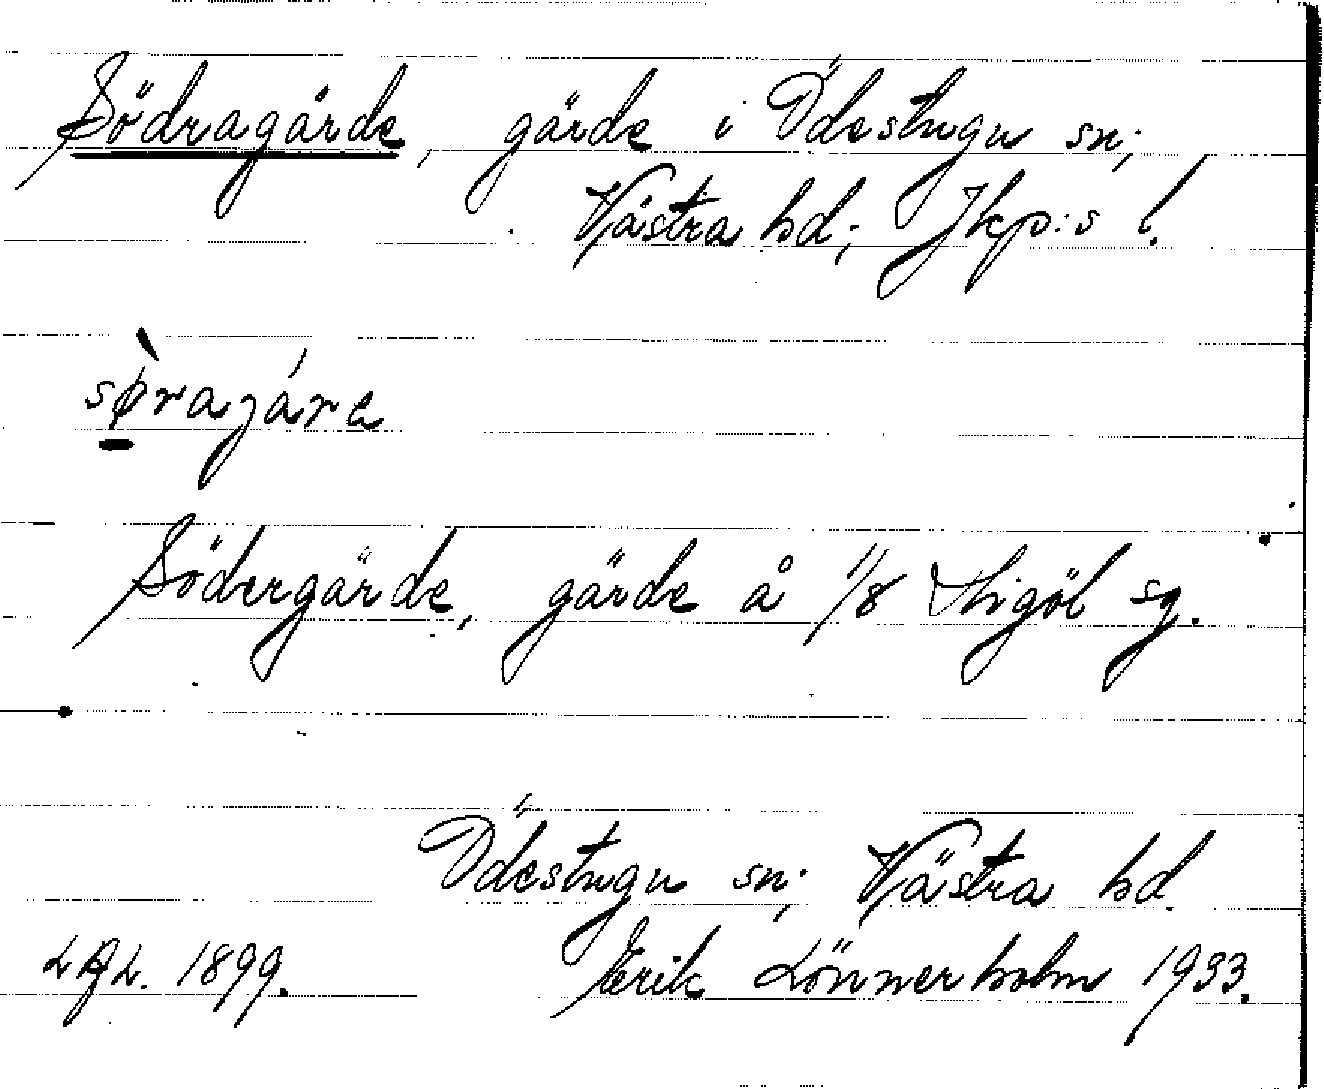 Södragärde, gärde i Ödestugu sn;
Västra hd; Jkp:s l.
sørajáre
Södergärde, gärde å 1/8 Stigöl sg.
Ödestugu sn; Västra hd.
1899. Erik Lönnerholm 1933.